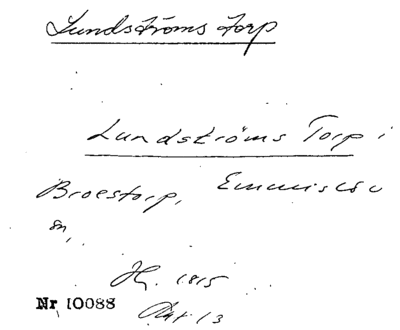 Lundströms torp
Lundströms Torp i
Broestorp, Emmislöv
sn,
Hf. 1815
Akt 13
Nr 10088